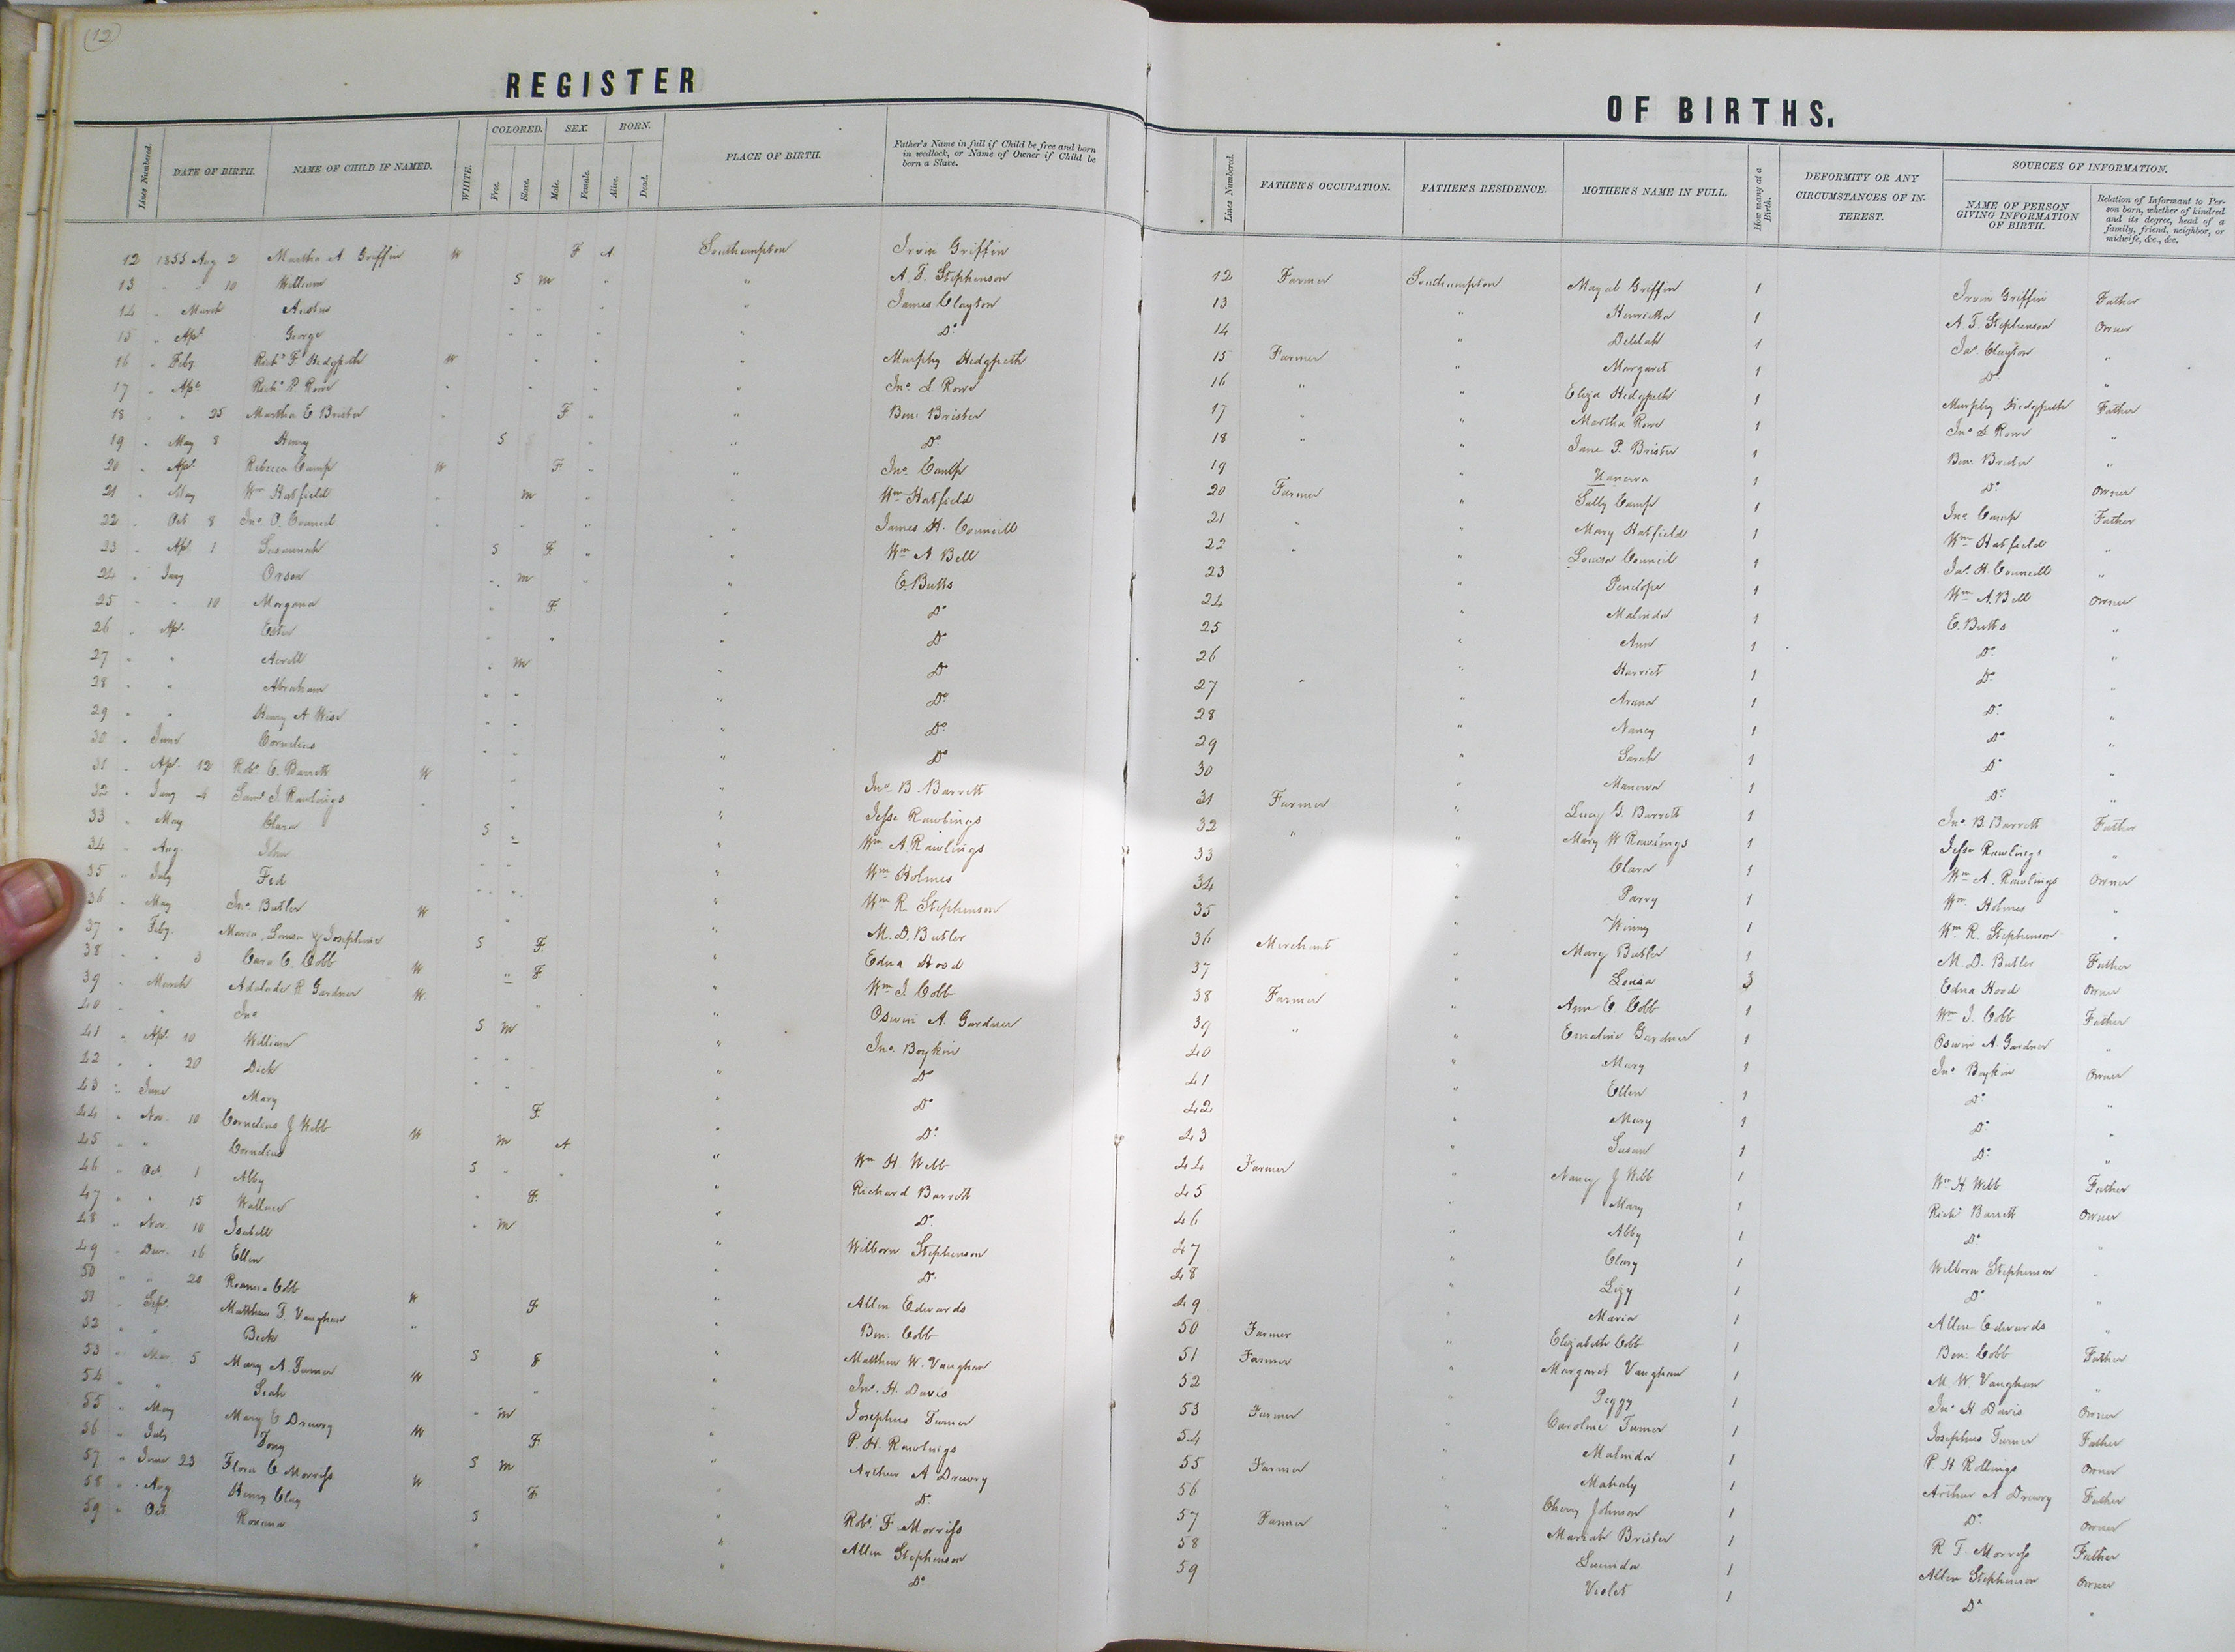 (12)
REGISTER
Lines Numbered. DATE OF BIRTH. NAME OF CHILD IF NAMED. WHITE. COLORED. Free. Slave. SEX. Male. Female. BORN. Alive. Dead. PLACE OF BIRTH. Father's Name in full if Child be free and born in wedlock, or Name of Owner if Child be born a Slave.
12 1855 Aug 2 Martha A Griffin W F A Southampton Irvin Griffin
13 " " 10 William S M " " A. T. Stephenson
14 " March Austin " " " " James Clayton
15 " Apl George " " " " Do
16 " Feby Richd F Hedgpeth W " " " Murphy Hedgpeth
17 " Apl Richd P. Rowe " " " " Jno S Rowe
18 " " 25 Martha E Brister " F " " Ben Brister
19 " May 8 Henry S " " Do
20 " Apl Rebecca Camp W F " " Jno Camp
21 " May Wm Hatfield " M " " Wm Hatfield
22 " Oct 8 Jno O. Council " " " " James H. Councill
23 " Apl 1 Susannah S F " " Wm A Bell
24 " Jany Orson " M " " E Butts
25 " " 10 Morgana " F " Do
26 " Apl Ester " " " Do
27 " " Averill " M " Do
28 " " Abraham " " " Do
29 " " Henry A Wise " " " Do
30 " June Cornelius " " " Do
31 " Apl 12 Robt E. Barrett W " " Jno B. Barrett
32 " Jany 4 Saml J. Rawlings " " " Jesse Rawlings
33 " May Clara S " " Wm A Rawlings
34 " Aug " " " Wm Holmes
35 " July Fed " " " Wm R. Stephenson
36 " May Jno Butler W " " M. D. Butler
37 " Feby Maria, Louisa & Josephine S F " Edna Hood
38 " " 3 Cara C. Cobb W F " Wm J. Cobb
39 " March Adalade R Gardner W " " Oswin A. Gardner
40 " " Jno S M " Jno Boykin
41 " Apl 10 William " " " Do
42 " " 20 Dick " " " Do
43 " June Mary F " Do
44 " Nov. 10 Cornelius J Webb W M A " Wm H. Webb
45 " " Cornelius S " " " Richard Barrett
46 " Oct 1 Abby " F " Do
47 " " 15 Wallace " M " Wilborn Stephenson
48 " Nov. 10 Isabell " Do
49 " Decr. 16 Ellen " Allen Edwards
50 " " 20 Roanna Cobb W F " Ben. Cobb
51 " Sep. Matthew T. Vaughan " " Matthew W. Vaughan
52 " " Beck S F " Jno. H. Davis
53 " Mar. 5 Mary A. Turner W " " Josephus Turner
54 " " Leah " M " P. H. Rawlings
55 " May Mary E Drewry W F " Arthur A Drewry
56 " July Tony S M " Do
57 " June 23 Flora C Morriss W F " Robt F Morriss
58 " Aug Henry Clay S " Allen Stephenson
59 " Oct Roxana " " Do
OF BIRTHS.
Lines Numbered. FATHER'S OCCUPATION. FATHER'S RESIDENCE. MOTHER'S NAME IN FULL. How many at a Birth. DEFORMITY OR ANY CIRCUMSTANCES OF INTEREST. SOURCES OF INFORMATION. NAME OF PERSON GIVING INFORMATION OF BIRTH. Relation of Informant to Person born, whether of kindred and its degree, head of a family, friend, neighbor, or midwife, &c., &c.
12 Farmer Southampton Griffin 1 Irvin Griffin Father
13 " Henrietta 1 A. T. Stephenson Owner
14 " Delilah 1 Jas. Clayton "
15 Farmer " Margaret 1 Do "
16 " " Eliza Hedgpeth 1 Murphy Hedgpeth Father
17 " " Martha Rowe 1 Jno S Rowe "
18 " " Jane P. Brister 1 Ben. Brister "
19 " 1 Do Owner
20 Farmer " Sally Camp 1 Jno Camp Father
21 " " Mary Hatfield 1 Wm Hatfield "
22 " " Louisa Council 1 Jas. H. Councill "
23 " Penelope 1 Wm A. Bell Owner
24 " Malinda 1 E. Butts "
25 " Ann 1 Do "
26 " Harriet 1 Do "
27 " " 1 Do "
28 " Nancy 1 Do "
29 " Sarah 1 Do "
30 " Manerva 1 Do "
31 Farmer " Lucy G. Barrett 1 Jno B. Barrett Father
32 " " Mary W Rawlings 1 Jesse Rawlings "
33 " Clara 1 Wm A. Rawlings Owner
34 " Parry 1 Wm Holmes "
35 " Winny 1 Wm R. Stephenson "
36 Merchant " Mary Butler 1 M. D. Butler Father
37 " Louisa 3 Edna Hood Owner
38 Farmer " Ann E. Cobb 1 Wm J. Cobb Father
39 " " Emaline Gardner 1 Oswin A. Gardner "
40 " Mary 1 Jno Boykin Owner
41 " Ellen 1 Do "
42 " Mary 1 Do "
43 " Susan 1 Do "
44 Farmer " Nancy J Webb 1 Wm H Webb Father
45 " Mary 1 Richd Barrett Owner
46 " Abby 1 Do "
47 " Clary 1 Wilborn Stephenson "
48 " Lizy 1 Do "
49 " Maria 1 Allen Edwards "
50 Farmer " Elizabeth Cobb 1 Ben. Cobb Father
51 Farmer " Margaret Vaughan 1 M. W. Vaughan "
52 " Peggy 1 Jno H Davis Owner
53 Farmer " Caroline Turner 1 Josephus Turner Father
54 " Malinda 1 P. H Rollings Owner
55 Farmer " Mahaly 1 Arthur A Drewry Father
56 " Cherry Johnson 1 Do Owner
57 Farmer " Mariah Brister 1 R T. Morriss Father
58 Lucinda 1 Allen Stephenson Owner
59 Violet 1 Do "